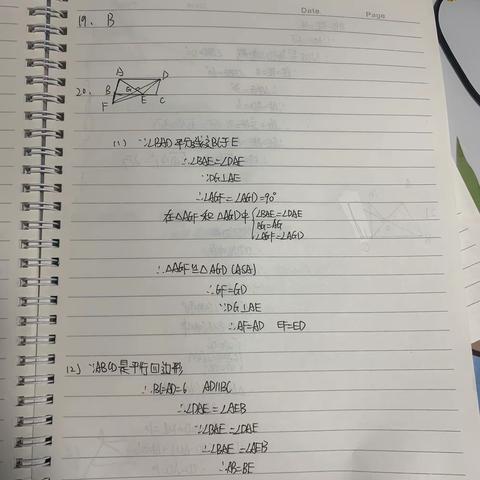 Date
Page
19. B
20.
A
D
B
G
E
C
F
(1) ∵∠BAD平分线交BC于E
∴∠BAE=∠DAE
∵DG⊥AE
∴∠AGF=∠AGD=90°
在△AGF和△AGD中{∠BAE=∠DAE
AG=AG
∠AGF=∠AGD
∴△AGF≌△AGD (ASA)
∴GF=GD
∵DG⊥AE
∴AF=AD EF=ED
(2) ∵ABCD是平行四边形
∴BC=AD=6 AD∥BC
∴∠DAE=∠AEB
∵∠BAE=∠DAE
∴∠BAE=∠AEB
∴AB=BE